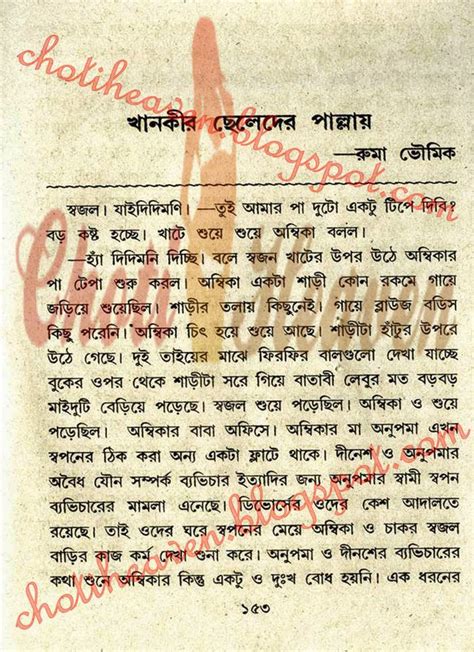 খানকীর ছেলেদের পাল্লায়
—রুমা ভৌমিক
স্বজল। যাইদিদিমণি। —তুই আমার পা দুটো একটু টিপে দিবি?
বড় কষ্ট হচ্ছে। খাটে শুয়ে শুয়ে অম্বিকা বলল।
—হ্যাঁ দিদিমনি দিচ্ছি। বলে স্বজন খাটের উপর উঠে অম্বিকার
পা টেপা শুরু করল। অম্বিকা একটা শাড়ী কোন রকমে গায়ে
জড়িয়ে শুয়েছিল। শাড়ীর তলায় কিছুনেই। গায়ে ব্লাউজ বডিস
কিছু পরেনি। অম্বিকা চিৎ হয়ে শুয়ে আছে। শাড়ীটা হাঁটুর উপরে
উঠে গেছে। দুই তাইয়ের মাঝে ফিরফির বালগুলো দেখা যাচ্ছে
বুকের ওপর থেকে শাড়ীটা সরে গিয়ে বাতাবী লেবুর মত বড়বড়
মাইদুটি বেড়িয়ে পড়েছে। স্বজল শুয়ে পড়েছিল। অম্বিকা ও শুয়ে
পড়েছিল। অম্বিকার বাবা অফিসে। অম্বিকার মা অনুপমা এখন
স্বপনের ঠিক করা অন্য একটা ফ্লাটে থাকে। দীনেশ ও অনুপমার
অবৈধ যৌন সম্পর্ক ব্যভিচার ইত্যাদির জন্য অনুপমার স্বামী স্বপন
ব্যভিচারের মামলা এনেছে। ডিভোর্সের ওদের কেশ আদালতে
রয়েছে। তাই ওদের ঘরে স্বপনের মেয়ে অম্বিকা ও চাকর স্বজল
বাড়ির কাজ কর্ম দেখা শুনা করে। অনুপমা ও দীনশের ব্যভিচারের
কথা শুনে অম্বিকার কিন্তু একটু ও দুঃখ বোধ হয়নি। এক ধরনের
১৫৩
chotiheaven.blogspot.com
Choti Heaven
chotiheaven.blogspot.com